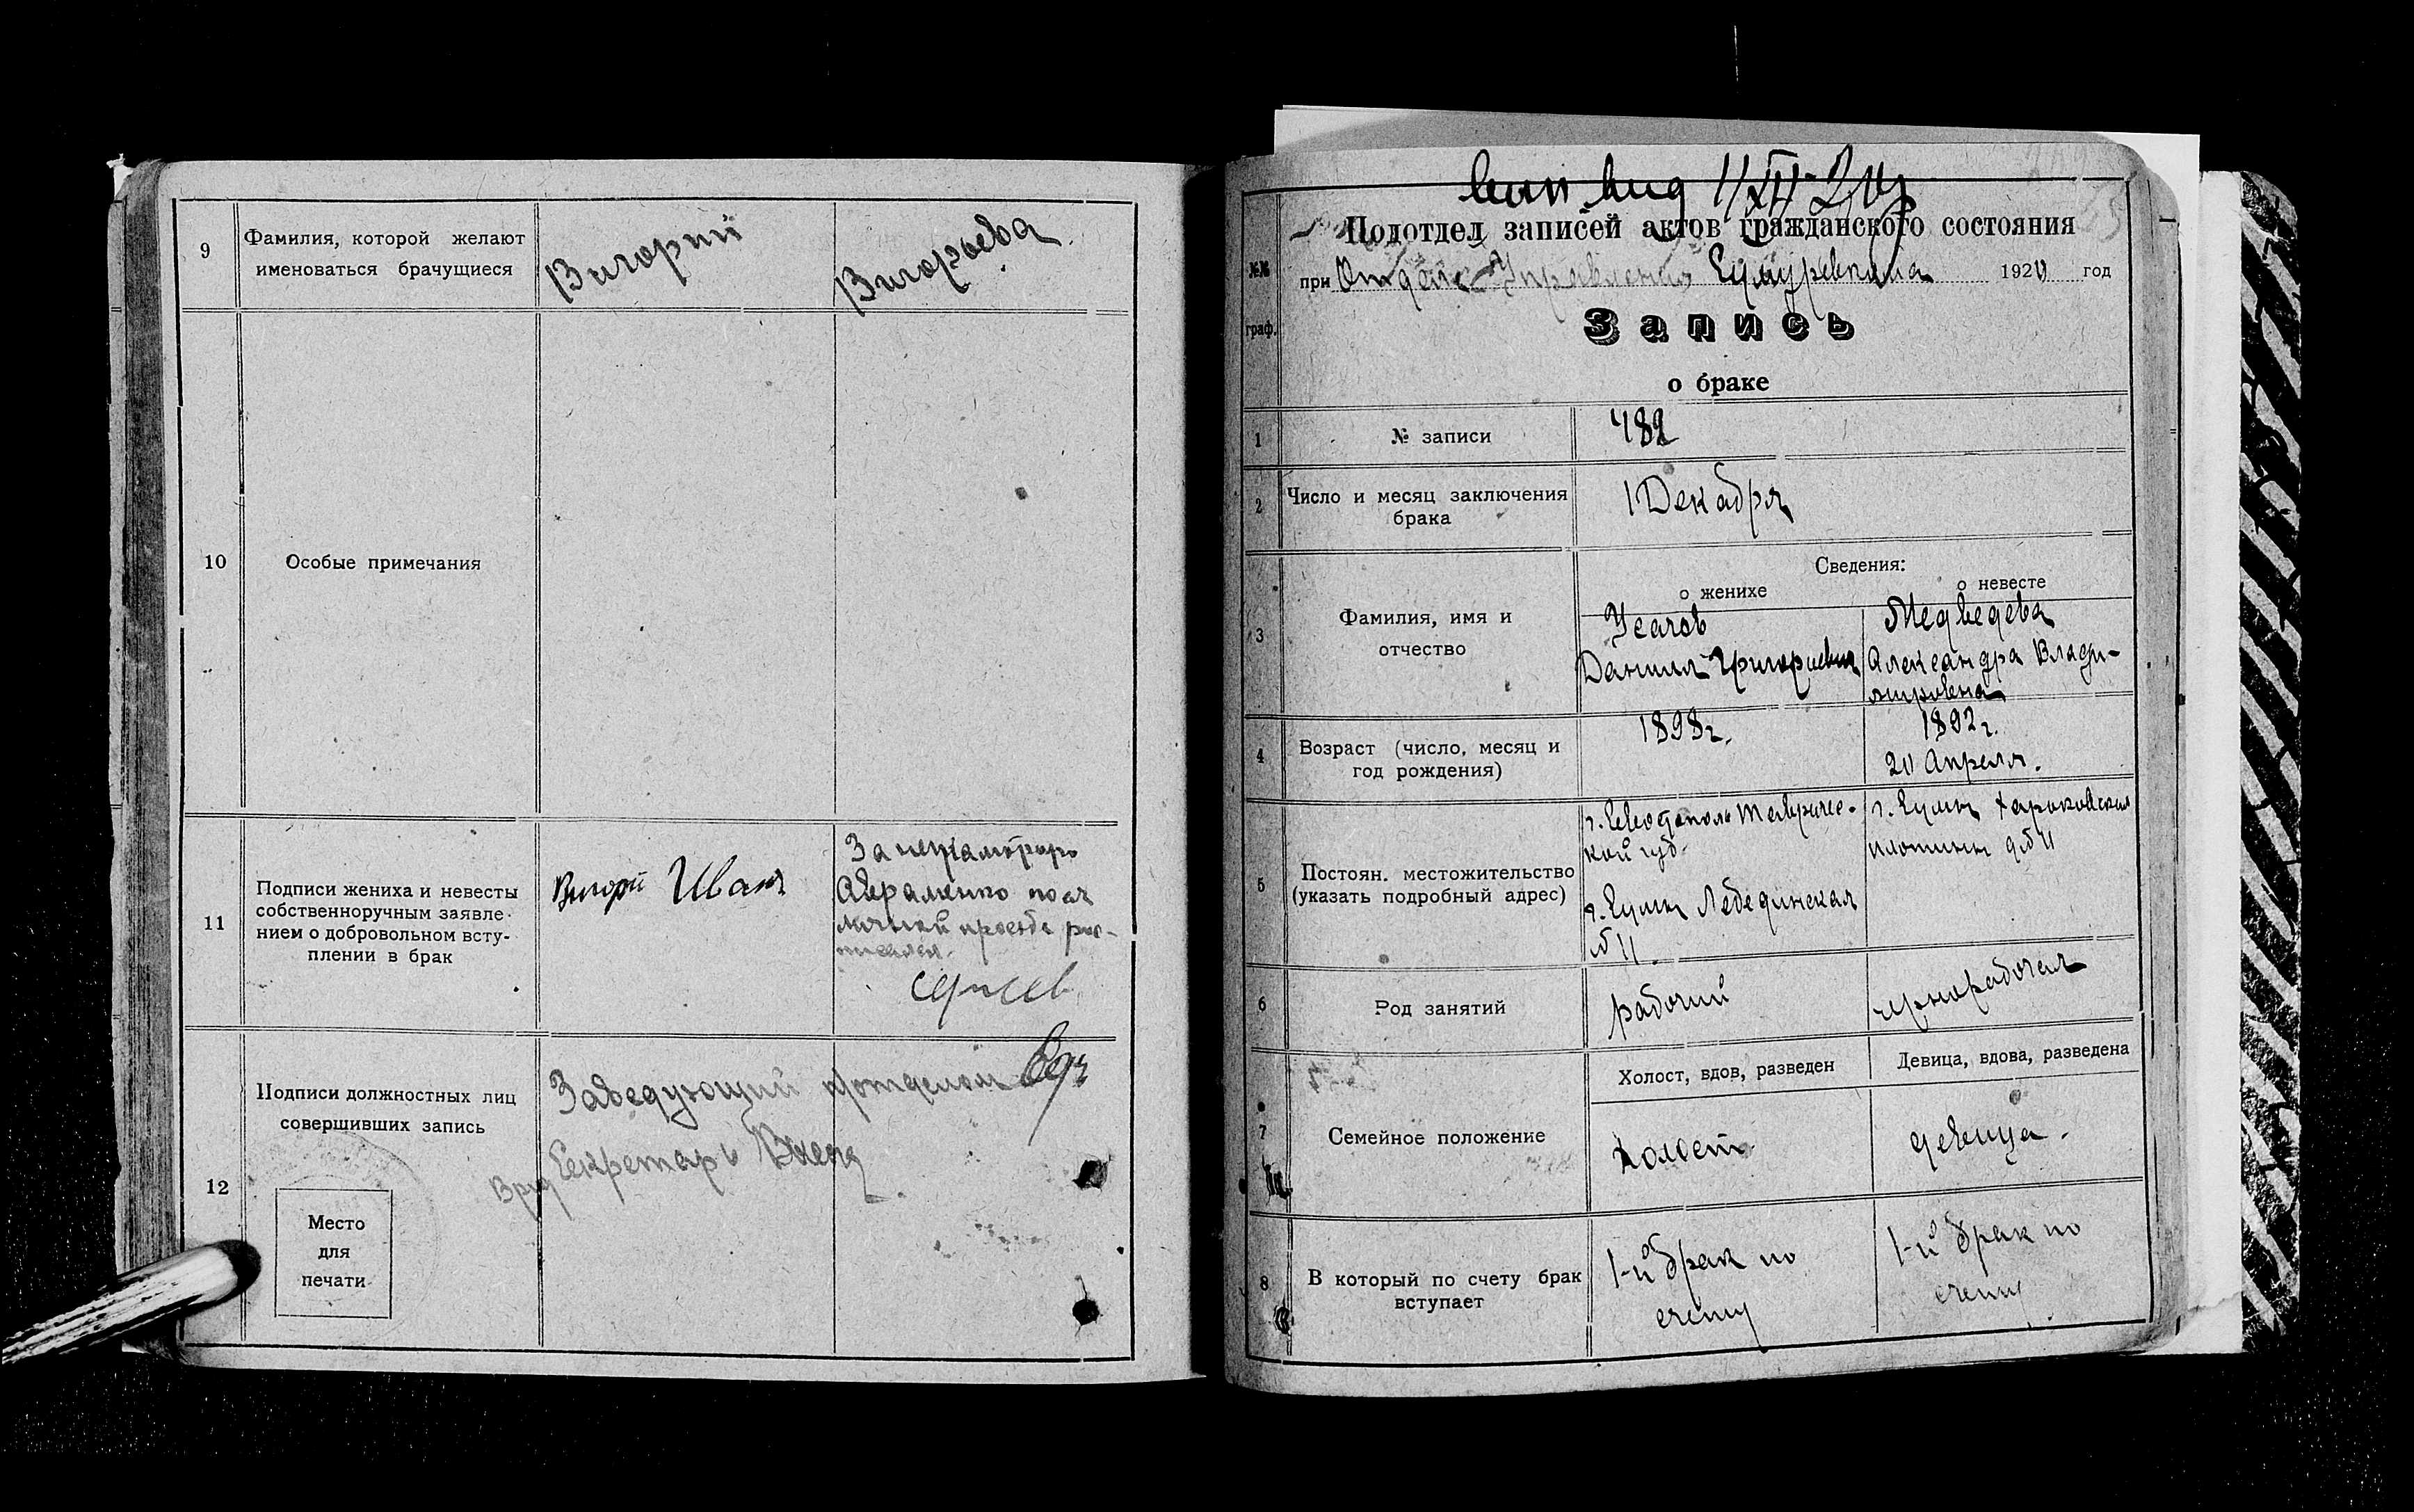 9
Фамилия, которой желают
именоваться брачущиеся
Вигорий
Вигорьева
10
Особые примечания
11
Подписи жениха и невесты
собственноручным заявле-
нием о добровольном всту-
плении в брак
Вигорий Иван
За неграмотную
Авраменко по ея
личной просьбе рас-
писался.
12
Подписи должностных лиц
совершивших запись
Заведующий п/отделом
Врид Секретарь
Место
для
печати
Подотдел записей актов гражданского состояния
№№
граф.
при Отделе Управления Сумуревкома 1920 год
Запись
о браке
1
№ записи
482
2
Число и месяц заключения
брака
1 Декабря
Сведения:
о женихе
о невесте
3
Фамилия, имя и
отчество
Усачов
Даниил Григориевич
Медведева
Александра Влади-
мировена
4
Возраст (число, месяц и
год рождения)
1898 г.
1892 г.
20 Апреля.
5
Постоян. местожительство
(указать подробный адрес)
г. Севостополь Тавричес-
кой губ.
г. Сумы Лебединская
№ 11.
г. Сумы Харьковская
плотины д № 11
6
Род занятий
рабочий
чернорабочая
Холост, вдов, разведен
Девица, вдова, разведена
7
Семейное положение
холост
девица.
8
В который по счету брак
вступает
1-й брак по
счету
1-й брак по
счету.